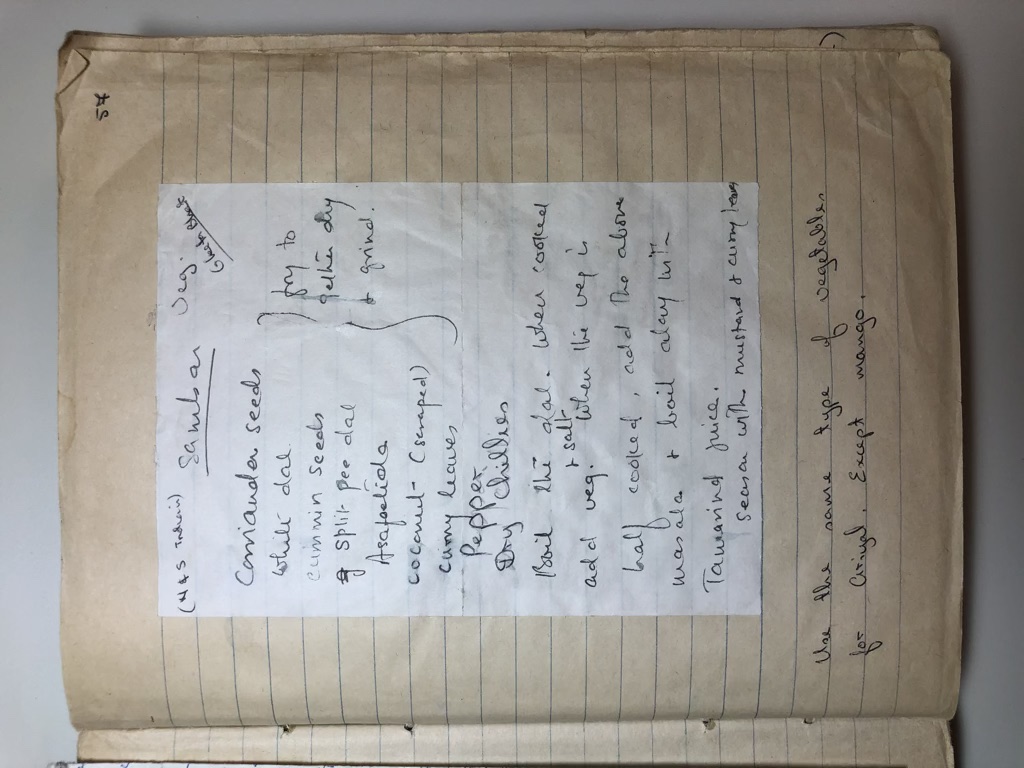 57
Sambar Veg.
Corriander seeds
white dal
cummin seeds
split pee dal
Asafoetida
coconut (scraped)
curry leaves
Pepper
Dry chillies
fry to
gether dry
& grind.
Boil the dal. When cooked
add veg. & salt. When the veg is
half cooked, add the above
masala & boil along with
Tamarind juice.
Season with mustard & curry leaves
Use the same type of vegetables
for Aviyal. Except mango.